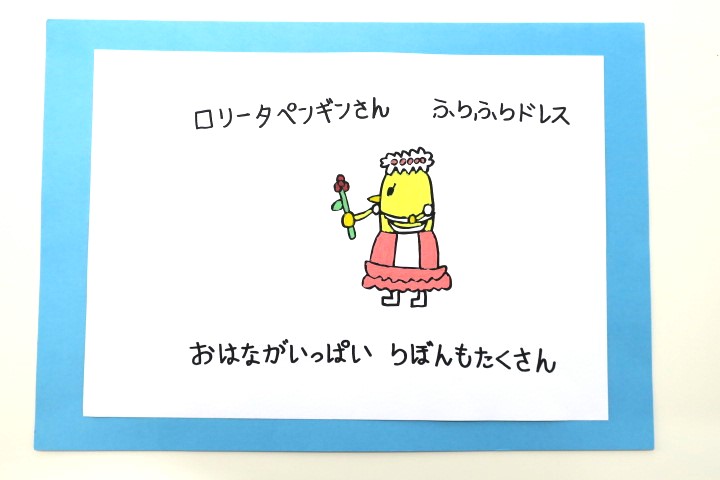 ロリータペンギンさん　ふらふらドレス
おはながいっぱい りぼんもたくさん